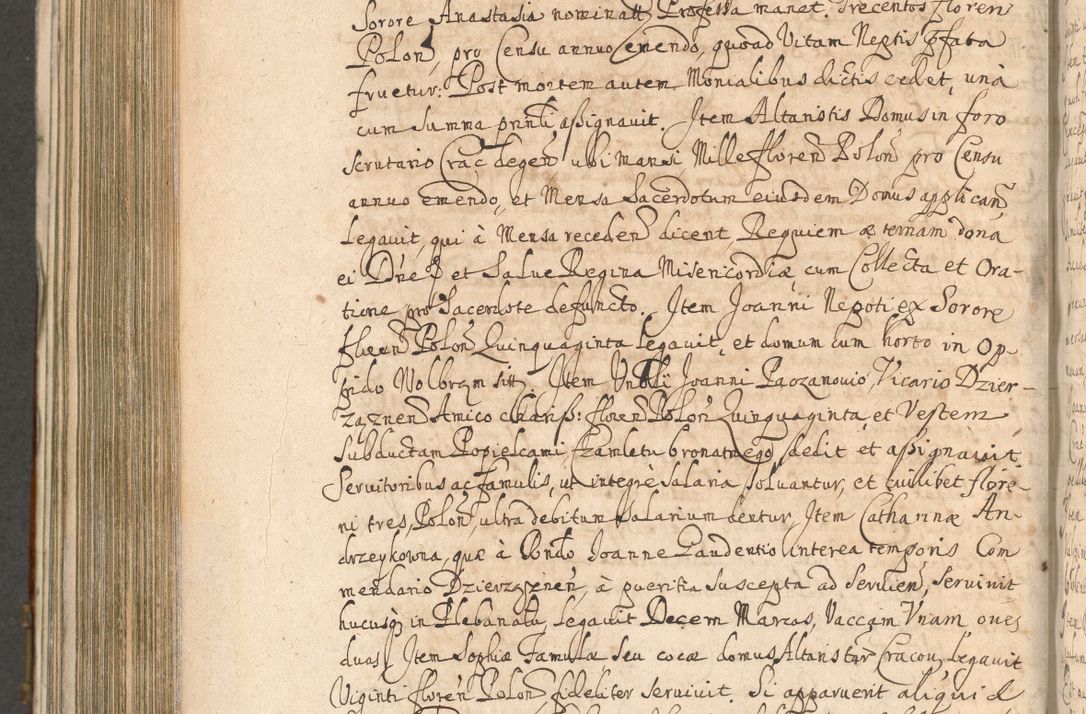 Sorore Anastasia nominatt Professa manet. Trecentos floren
Polon, pro Censu annuo emendo, quoad Vitam Neptis pfata
fruetur: Post mortem autem Monialibus dictis cedet, una
cum Summa pnnti, assignauit. Item Altaristis Domus in foro
Scrutario Crac degen ubi mansi Mille floren Polon pro Censu
annuo emendo, et Mensa Sacerdotum eiusdem Domus applican
Legauit, qui à Mensa receden dicent Requiem æternam dona
ei Dne et Salue Regina Misericordiæ cum Collecta et Ora-
tione pro Sacerdote defuncto. Item Joanni Nepoti ex Sorore
floren Polon Quinquaginta legauit, et domum cum horto in Op-
pido Wolbrzm sitt. Item Joanni Vicario Dzier-
zaznen Amico chariss: floren Polon Quinquaginta, et Vestem
Subductam Popielcami Czamletu bronatnego dedit et assignauit
Seruitoribus ac famulis, ut integrè Salaria soluantur, et cuilibet flore-
ni tres, Polon ultra debitum Salarium dentur, Item Catharinæ An-
drzeykowna, quæ à Joanne Gaudentio interea temporis Com
mendario Dzierzaznen, à pueritia suscepta ad Seruien, Seruiuit
hucusq in Plebanatu, legauit Decem Marcas, Vaccam Vnam oues
duas, Item Sophiæ Famulæ seu cocæ domus Altaristar Cracou, legauit
Viginti floren Polon fideliter seruiuit. Si apparuerit aliquid